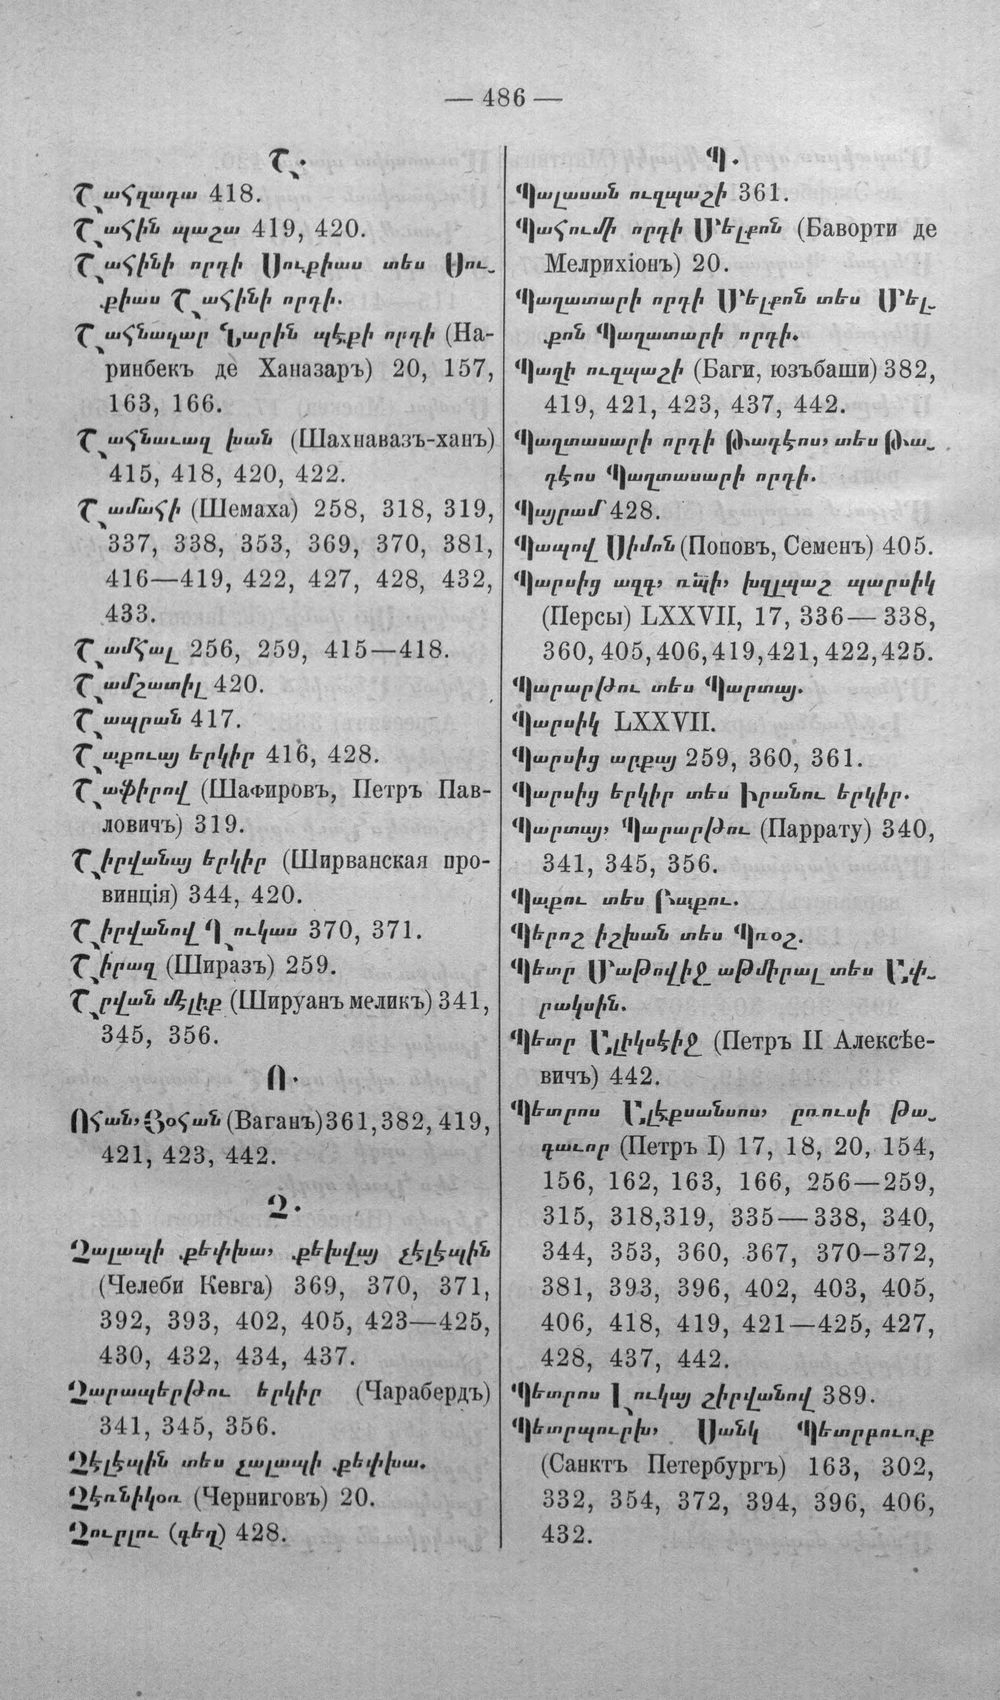 — 486 —
Շ.
Շահզադա 418.
Շահին պաշա 419, 420.
Շահինի որդի Սուքիաս տես Սու-
քիաս Շահինի որդի.
Շահնազար Նարին պէքի որդի (На-
ринбекъ де Ханазаръ) 20, 157,
163, 166.
Շահնաւազ խան (Шахнавазъ-ханъ)
415, 418, 420, 422.
Շամախի (Шемаха) 258, 318, 319,
337, 338, 353, 369, 370, 381,
416—419, 422, 427, 428, 432,
433.
Շամհալ 256, 259, 415—418.
Շամշատիլ 420.
Շապրան 417.
Շաքուայ երկիր 416, 428.
Շաֆիրով (Шафировъ, Петръ Пав-
ловичъ) 319.
Շիրվանայ երկիր (Ширванская про-
винція) 344, 420.
Շիրվանով Ղուկաս 370, 371.
Շիրազ (Ширазъ) 259.
Շրվան մէլիք (Шируанъ меликъ) 341,
345, 356.
Ո.
Ոհան, Յօհան (Ваганъ) 361, 382, 419,
421, 423, 442.
Չ.
Չալապի քեփխա, քեխվայ չէլէպին
(Челеби Кевга) 369, 370, 371,
392, 393, 402, 405, 423—425,
430, 432, 434, 437.
Չարապերթու երկիր (Чарабердъ)
341, 345, 356.
Չէլէպին տես չալապի քեփխա.
Չէռնիկօռ (Черниговъ) 20.
Չուրլու (գեղ) 428.
Պ.
Պալասան ուզպաշի 361.
Պահումի որդի Մելքոն (Баворти де
Мелрихіонъ) 20.
Պաղատարի որդի Մելքոն տես Մել-
քոն Պաղատարի որդի.
Պաղի ուզպաշի (Баги, юзъбаши) 382,
419, 421, 423, 437, 442.
Պաղտասարի որդի Թադէոս, տես Թա-
դէոս Պաղտասարի որդի.
Պայրամ 428.
Պապով Սիմոն (Поповъ, Семенъ) 405.
Պարսից ազգ, ռպի, խզլպաշ պարսիկ
(Персы) LXXVII, 17, 336—338,
360, 405, 406, 419, 421, 422, 425.
Պարարթու տես Պարտայ.
Պարսիկ LXXVII.
Պարսից արքայ 259, 360, 361.
Պարսից երկիր տես իրանու երկիր.
Պարտայ, Պարարթու (Паррату) 340,
341, 345, 356.
Պաքու տես Բաքու.
Պերոշ իշխան տես Պռօշ.
Պետր Մաթովիչ աթմիրալ տես Ափ-
րակսին.
Պետր Ալիկսէիչ (Петръ II Алексѣе-
вичъ) 442.
Պետրոս Ալէքսանսոս, ըռուսի թա-
գաւոր (Петръ I) 17, 18, 20, 154,
156, 162, 163, 166, 256—259,
315, 318, 319, 335—338, 340,
344, 353, 360, 367, 370—372,
381, 393, 396, 402, 403, 405,
406, 418, 419, 421—425, 427,
428, 437, 442.
Պետրոս Լուկայ շիրվանով 389.
Պետրպուրխ, Սանկ Պետրբուռք
(Санктъ Петербургъ) 163, 302,
332, 354, 372, 394, 396, 406,
432.